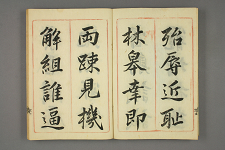 殆辱近耻
林皋幸即
両疎見機
解組誰逼